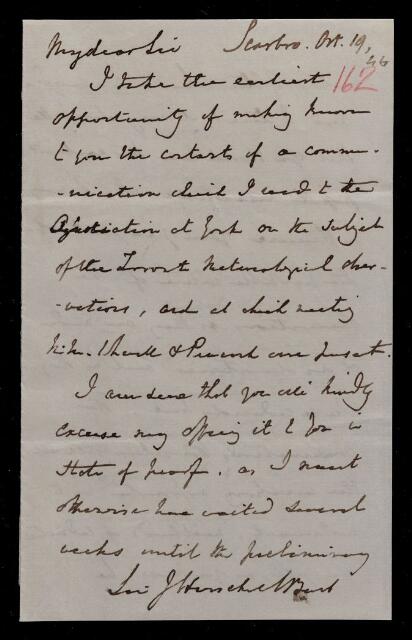 My dear Sir Scarbro. Oct. 19, 46
162
I take the earliest
opportunity of making known
to you the contents of a commu-
-nication which I read to the
Association at York on the subject
of the Toronto Meteorological obser-
-vations, and at which meeting
Whewell & Peacock were present.
I am sure that you will kindly
excuse my offering it to you in
state of proof. as I must
otherwise have waited several
weeks until the preliminary
Sir J Herschel Bart